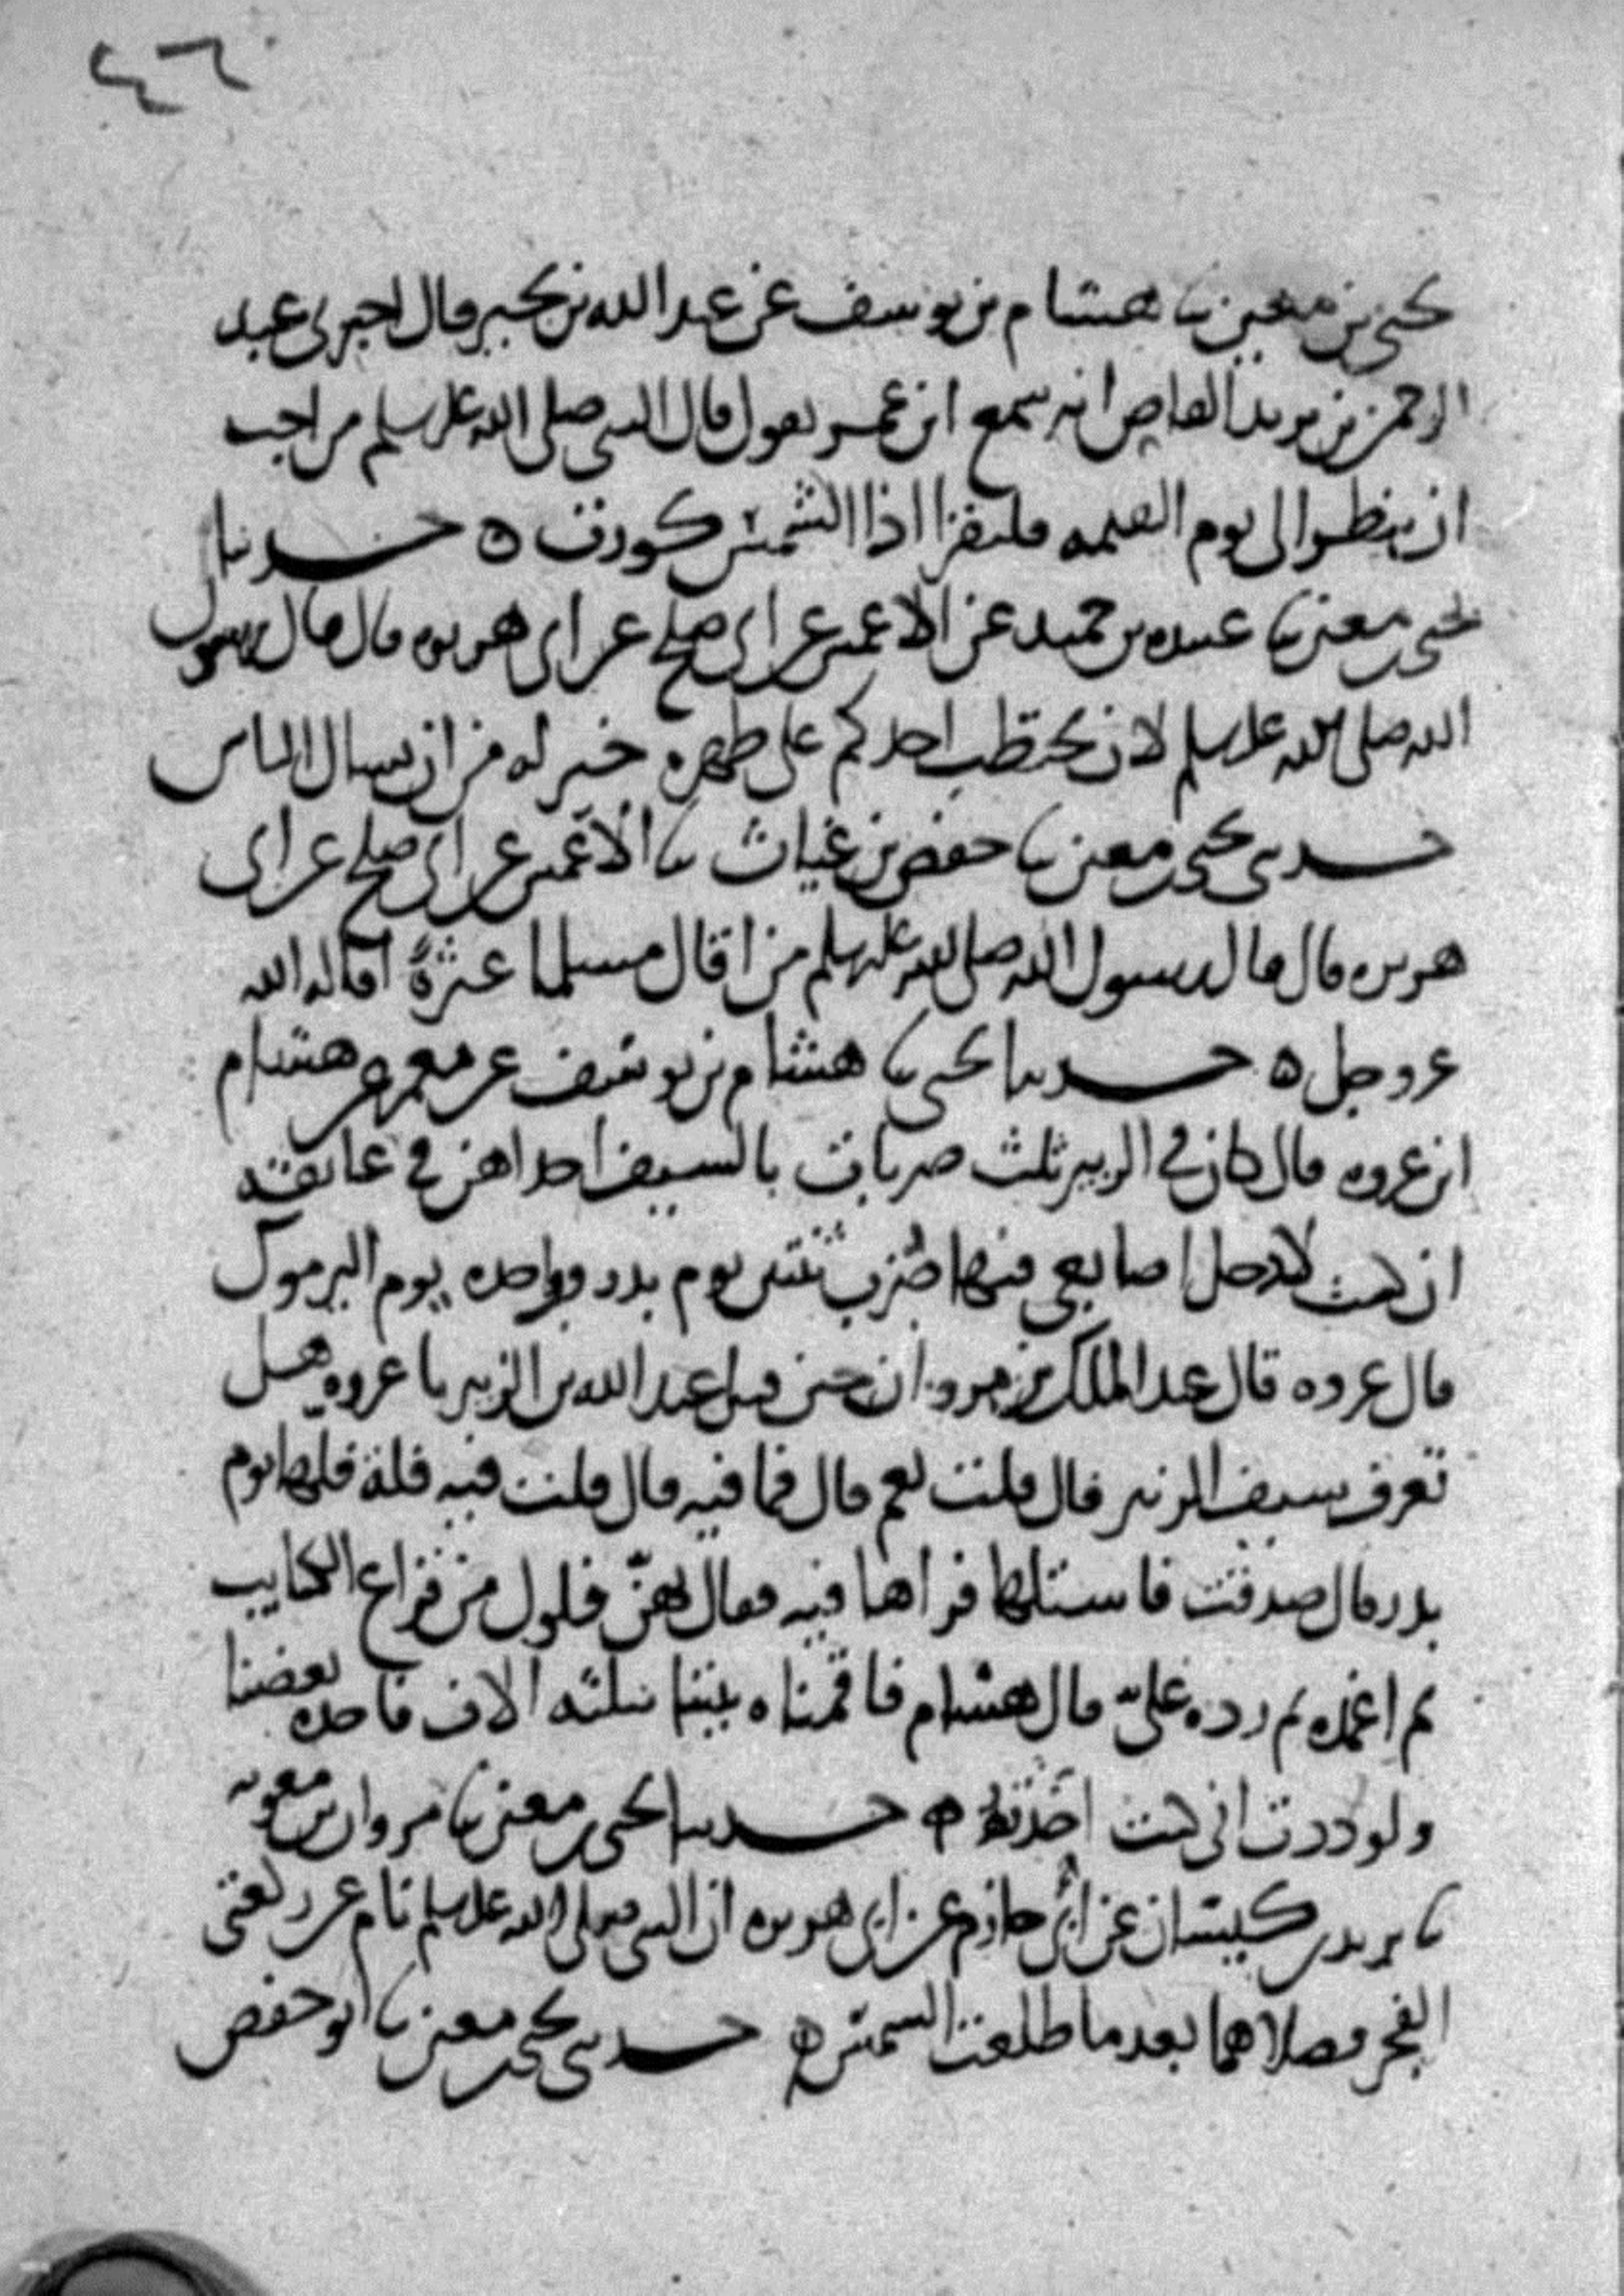 ٤٢٦
يحيى بن معين نا هشام بن يوسف عن عبد الله بن بحير قال اخبرني عبد
الرحمن بن يزيد القاص انه سمع ابن عمر يقول قال النبي صلى الله عليه وسلم من احب
ان ينظر الى يوم القيمه فليقرا اذا الشمس كورت ه حدثنا
يحيى بن معين نا عبيده بن حميد عن الاعمش عن ابي صلح عن ابي هريره قال قال رسول
الله صلى الله عليه وسلم لان يحتطب احدكم على ظهره خير له من ان يسال الناس
حدثني يحيى بن معين نا حفص بن غياث نا الاعمش عن ابي صلح عن ابي
هريره قال قال رسول الله صلى الله عليه وسلم من اقال مسلما عثرةً اقاله الله
عز وجل ه حدثنا يحيى نا هشام بن يوسف عن معمر عن هشام
ابن عروه قال كان في الزبير ثلث ضربات بالسيف احداهن في عاتقه
ان كنت لادخل اصابعي فيها ضُرب ثنتين يوم بدر وواحده يوم اليرموك
قال عروه قال عبد الملك بن مروان حين قتل عبد الله بن الزبير يا عروه هل
تعرف سيف الزبير قال قلت نعم قال فما فيه قال قلت فيه فلة فلها يوم
بدر قال صدقت فاستلها فراها فيه فقال بهنّ فلول من قراع الكتايب
ثم اغمده ثم رده عليّ قال هشام فاقمناه بيننا ثلثه الاف فاخذه بعضنا
ولوددت اني كنت اخذته ه حدثنا يحيى بن معين نا مروان بن معويه
نا يزيد بن كيسان عن ابي حازم عن ابي هريره ان النبي صلى الله عليه وسلم نام عن ركعتي
الفجر فصلاهما بعد ما طلعت الشمس ه حدثني يحيى بن معين نا ابو حفص